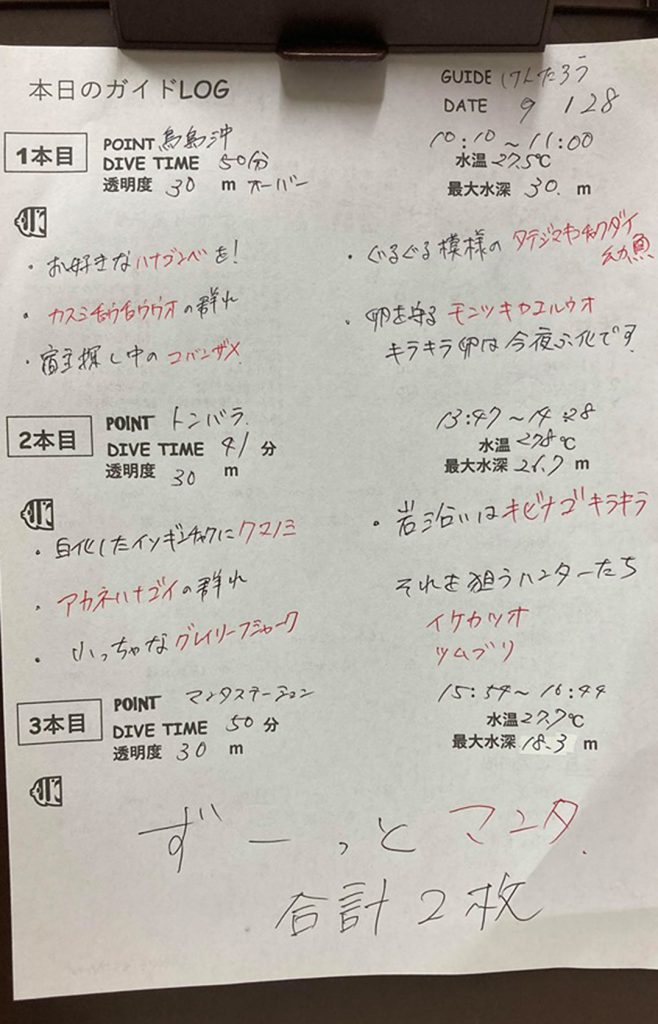 本日のガイドLOG
GUIDE けんたろう
DATE 9 / 28
1本目
POINT 鳥島沖
DIVE TIME 50分
透明度 30 m オーバー
10:10 ~ 11:00
水温 27.5℃
最大水深 30. m
・お好きなハナゴンベを!
・カスミチョウチョウウオの群れ
・宿主探し中のコバンザメ
・ぐるぐる模様のタテジマキンチャクダイ
幼魚
・卵を守るモンツキカエルウオ
キラキラ卵は今夜ふ化です
2本目
POINT トンバラ
DIVE TIME 41 分
透明度 30 m
13:47 ~ 14:28
水温 27.8℃
最大水深 26.7 m
・白化したイソギンチャクにクマノミ
・アカネハナゴイの群れ
・小っちゃなグレイリーフシャーク
・岩沿いはキビナゴキラキラ
それを狙うハンターたち
イケカツオ
ツムブリ
3本目
POINT マンタステーション
DIVE TIME 50 分
透明度 30 m
15:54 ~ 16:44
水温 27.7℃
最大水深 18.3 m
ずーっとマンタ.
合計2枚